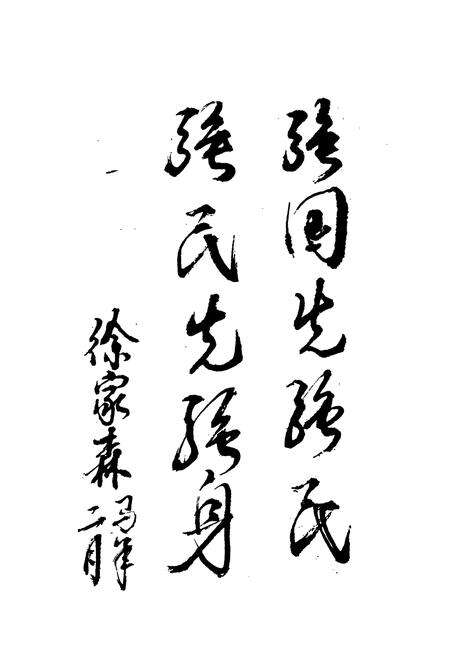 强国先强民
强民先强身
徐寅森
马年
二月